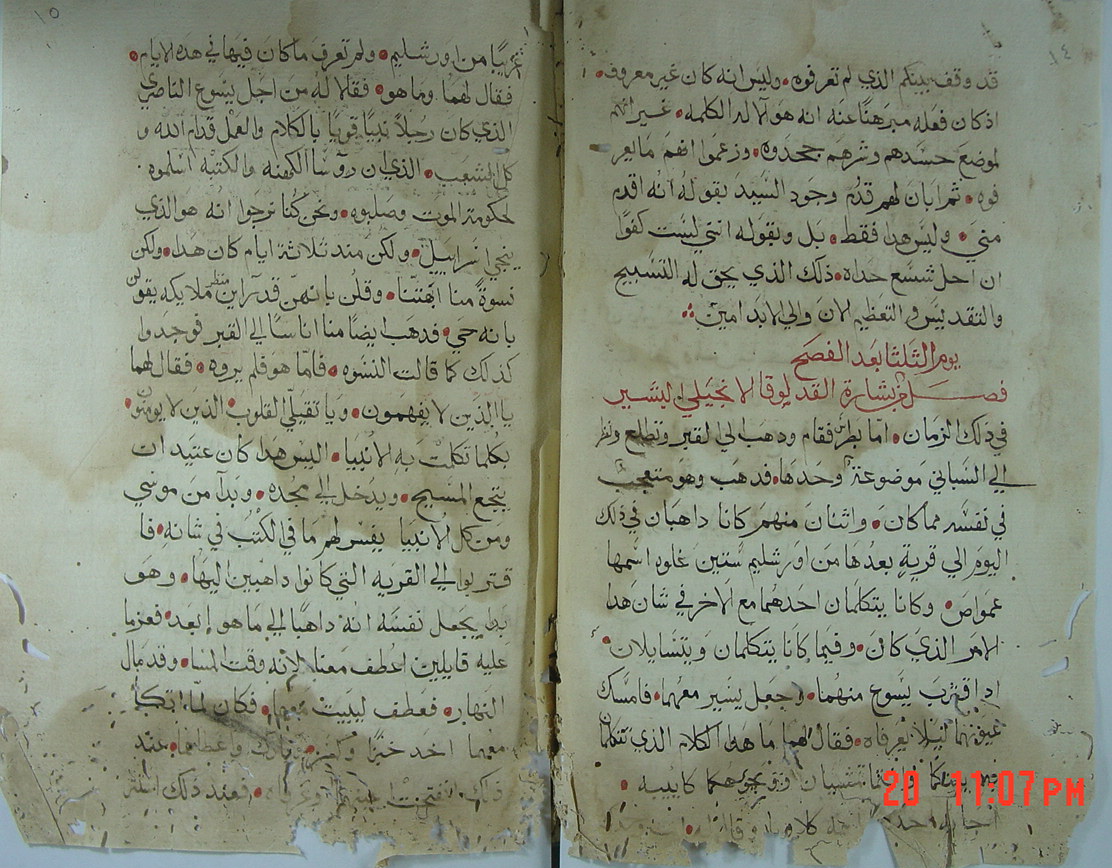 ١٤
قد وقف بينكم الذي لم تعرفوه وليس انه كان غير معروف
اذ كان فعله مبرهنًا عنه انه هو الاله الكلمه غير انهم
لموضع حسدهم وشرهم جحدوه وزعموا انهم ما يعر
فوه ثم ابان لهم قدم وجود السيد بقوله انه اقدم
مني وليس هدا فقط بل وبقوله انني لست كفوًا
ان احل شسع حداه ذلك الذي يحق له التسبيح
والتقديس والتعظيم الان والي الابد امين
يوم الثلثا بعد الفصح
فصل من بشارة القد لوقا الانجيلي البشير
في ذلك الزمان اما بطرس فقام ودهب الي القبر وتطلع ونظر
الي السباني موضوعة وحدها فدهب وهو متعجب
في نفسه مما كان واثنان منهم كانا داهبان في ذلك
اليوم الي قرية بعدها من اورشليم ستين غلوه اسمها
عمواص وكانا يتكلمان احدهما مع الاخر في شان هدا
الامر الذي كان وفيما كانا يتكلمان ويتسايلان
اد اقترب يسوع منهما وجعل يسير معهما فامسك
عيونهما ليلا يعرفاه فقال لهما ما هدا الكلام الذي تتكلمان
تمشيان كابيه
20 11:07 PM
١٥
غريبًا من اورشليم ولم تعرف ما كان فيها في هده الايام
فقال لهما وما هو فقالا له من اجل يسوع الناصري
الذي كان رجلاً نبيًا قويًا بالكلام والعمل قدام الله و
كل الشعب الذي ان روسا الكهنه والكتبة اسلموه
لحكومة الموت وصلبوه ونحن كنا نرجوا انه هو الذي
ينجي اسراييل ولكن مند تلاثة ايام كان هدا ولكن
نسوةً منا ابهتننا وقلن بانهن قد رآين منظر ملايكه يقولن
بانه حي فدهب ايضًا منا اناسًا الي القبر فوجدوا
كدلك كما قالت النسوه فاما هو فلم يروه فقال لهما
يا الذين لا يفهمون ويا تقيلي القلوب الذين لا يومنون
بكلما تكلمت به الانبيا اليس هدا كان عتيد ان
يتجع المسيح ويدخل الي مجده وبدآ من موسي
ومن كل الانبيا يفسر لهم ما في الكتب في شانه فا
قتربوا الي القريه التي كانوا داهبين اليها وهو
بدا يجعل نفسه انه داهبًا الي ما هو ابعد فعزما
عليه قايلين اعطف معنا لانه وقت المسا وقد مال
النهار فعطف ليبيت معهما فكان لما اتكآ
معهما اخد خبزًا وكسر وبارك واعطاهما عند
ذلك انفتحت فعند ذلك